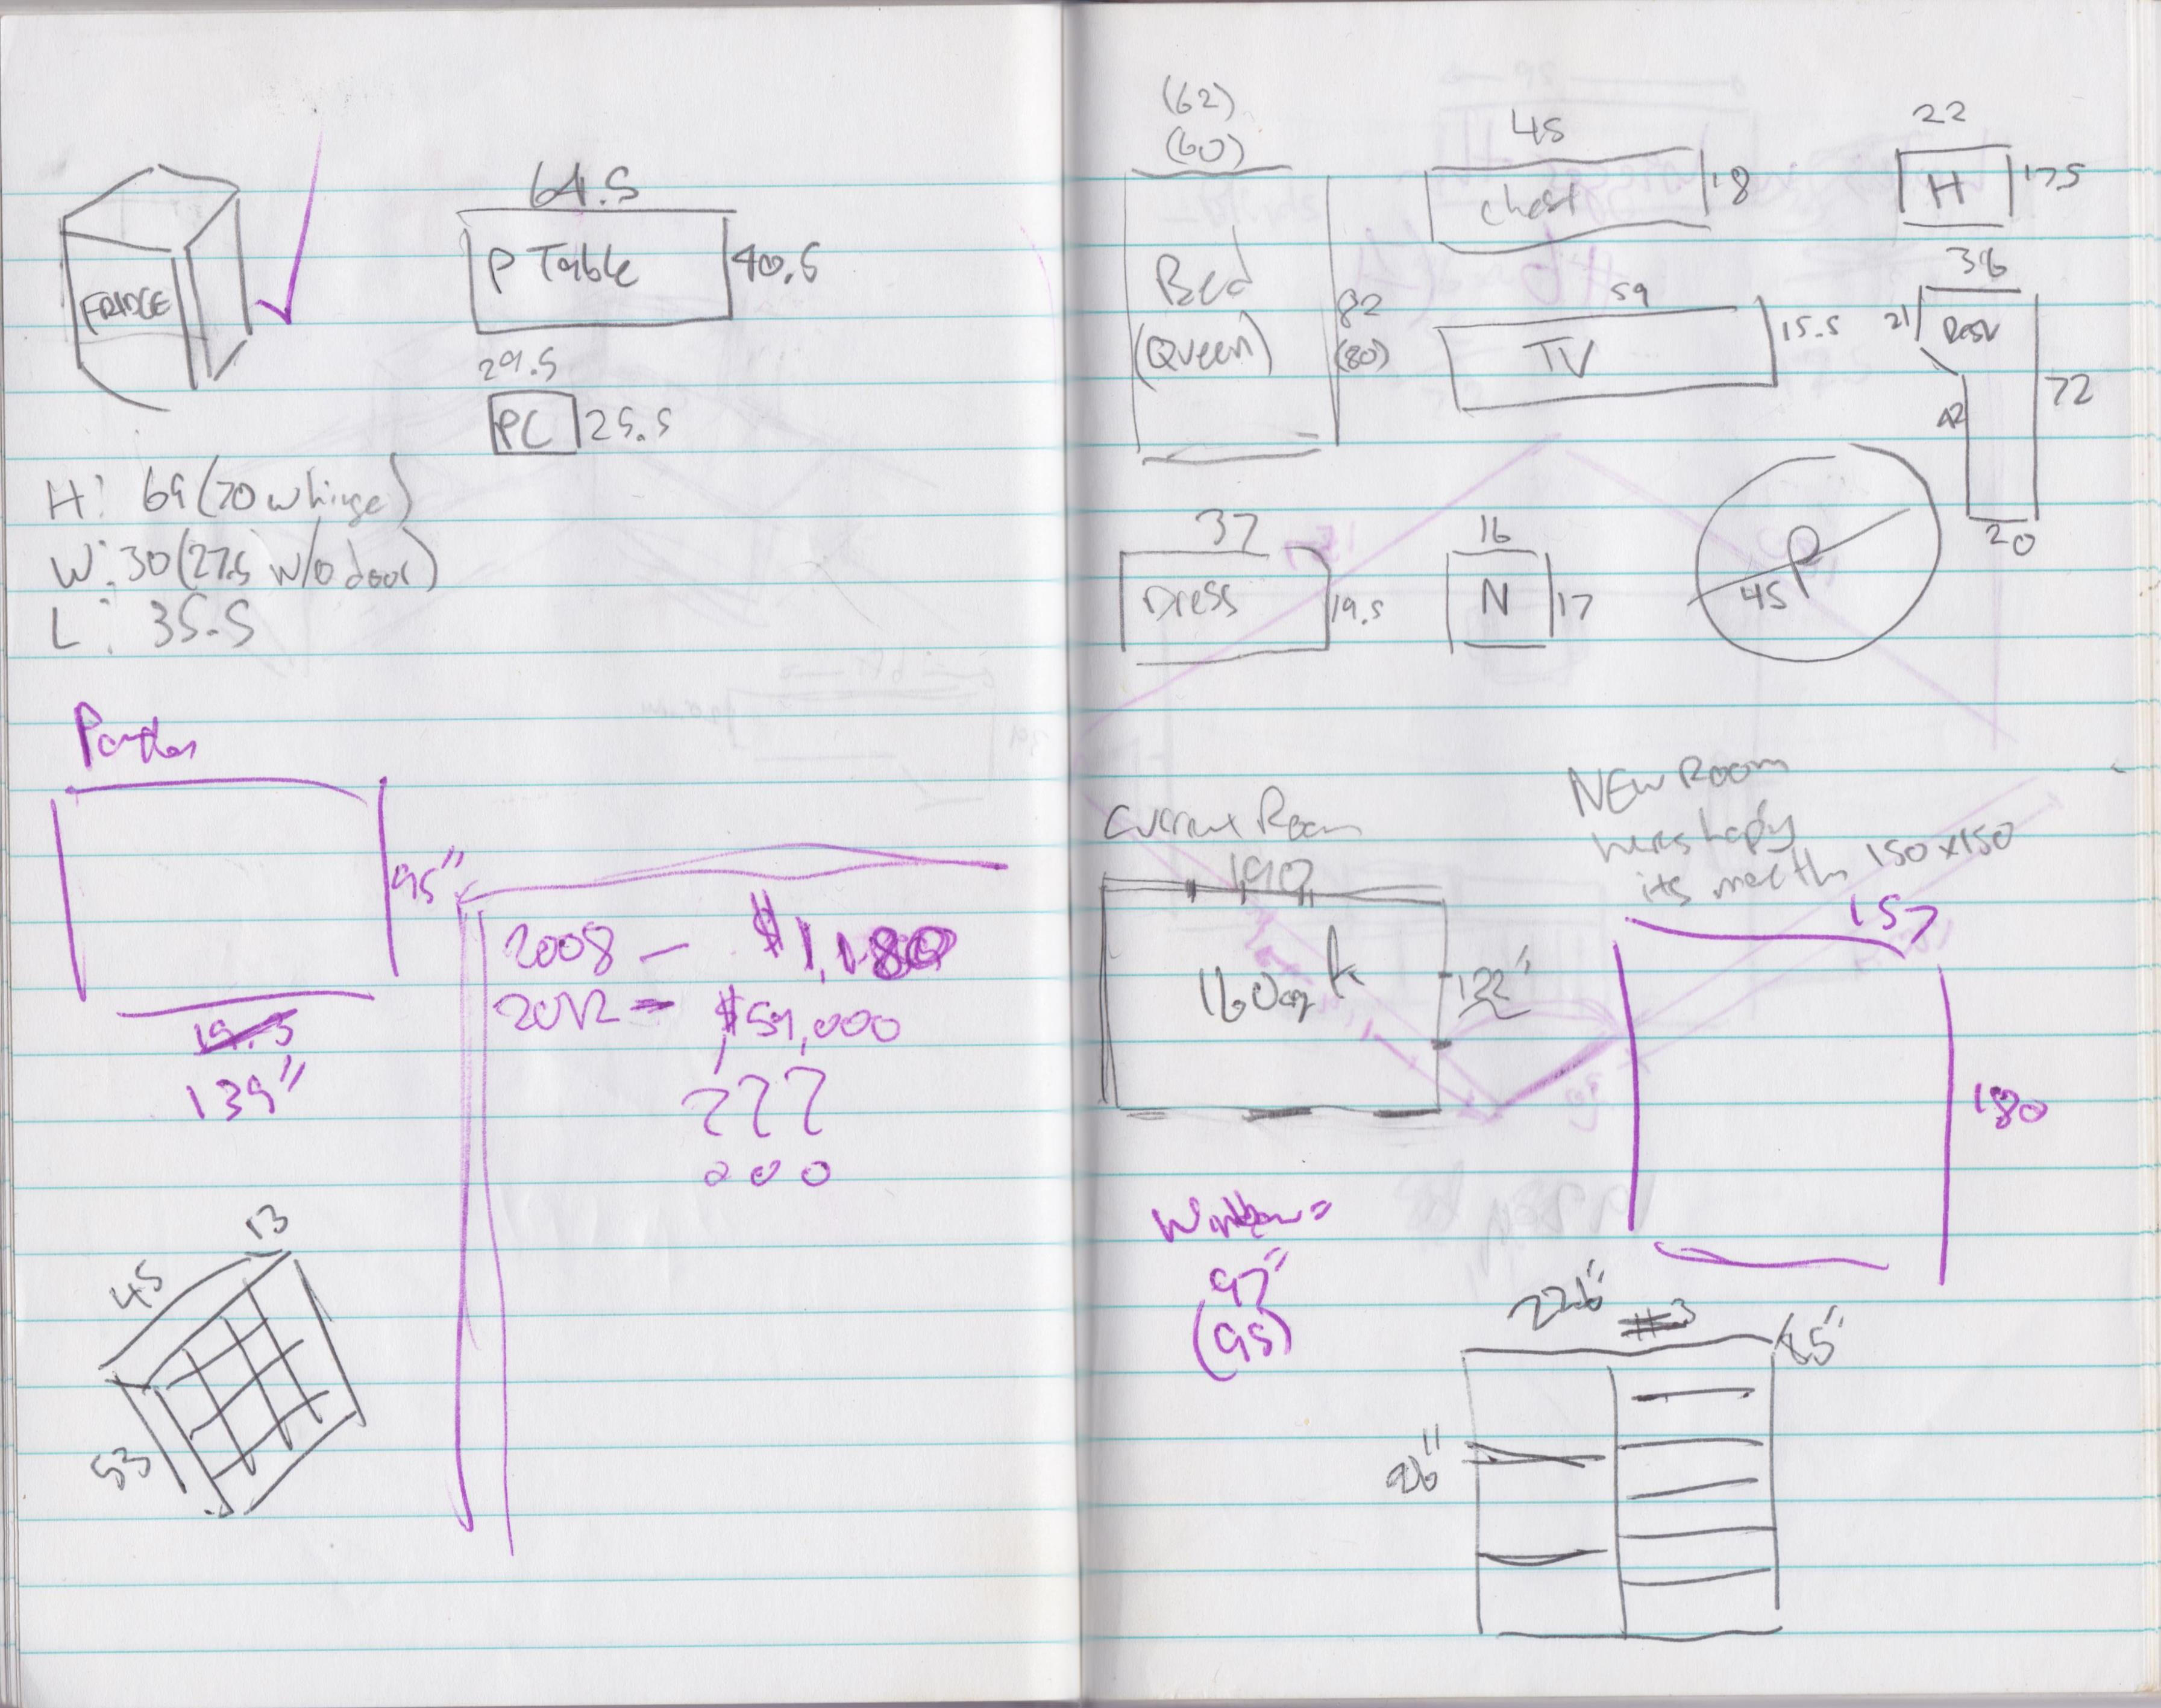 FRIDGE
64.5
P Table
40.5
29.5
PC
25.5
H: 69 (70 w hinge)
W: 30 (27.5 w/o door)
L: 35.5
95"
19.5
139"
2008 – $1,180
2012 – $59,000
???
13
45
53
(62)
(60)
Bed
(Queen)
82
(80)
45
Chest
18
22
H
17.5
59
TV
15.5
36
21
Desk
42
72
20
37
Dress
19.5
16
N
17
P
45
Current Room
190
122"
NEW Room
heres hoping
its more than 150x150
157
180
Window =
97"
(95)
#3